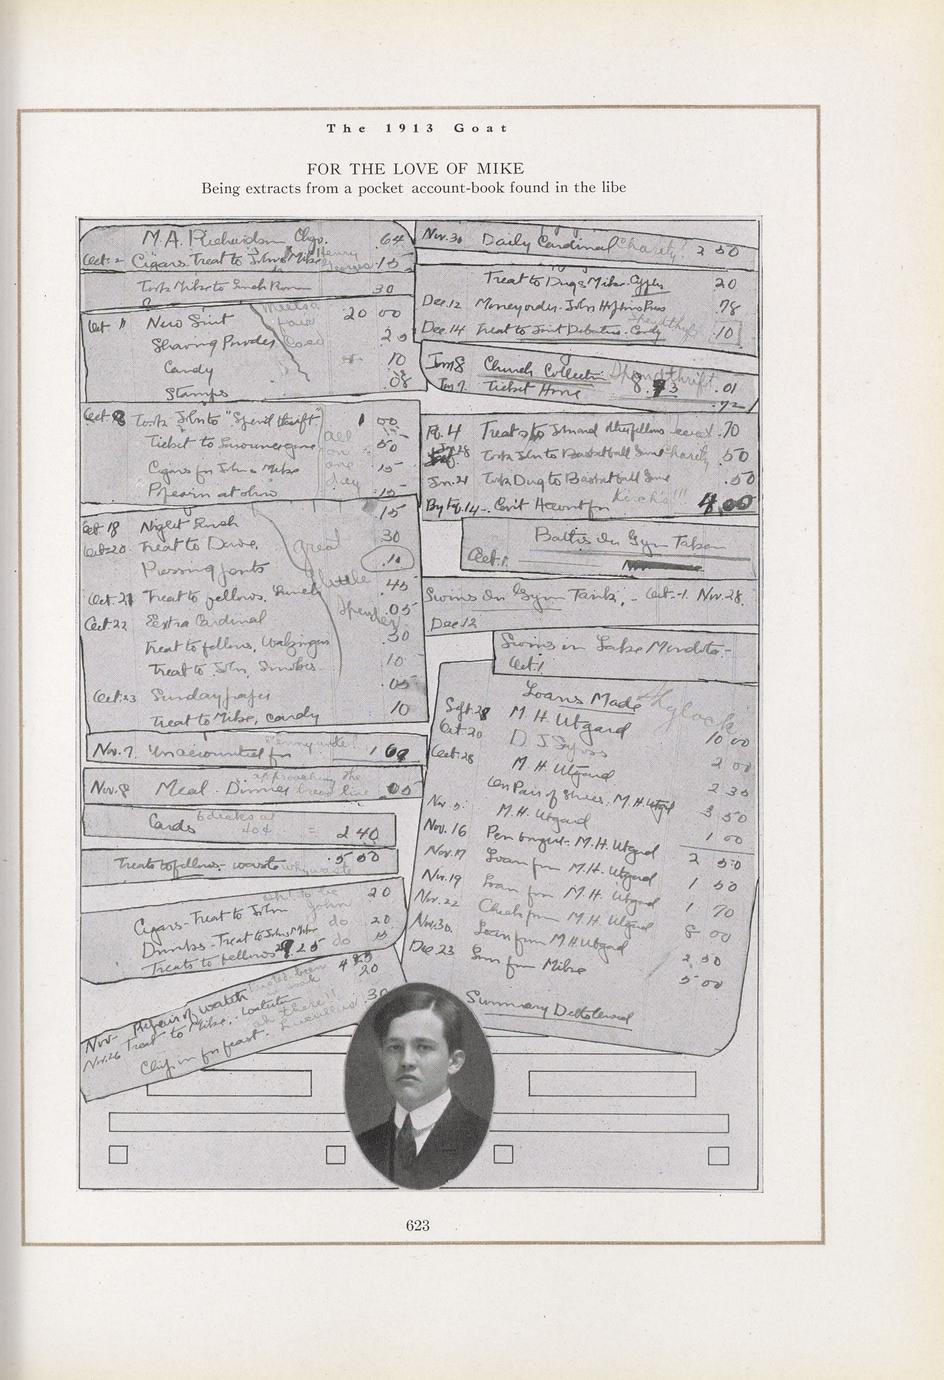 The 1913 Goat
FOR THE LOVE OF MIKE
Being extracts from a pocket account-book found in the libe
M.A. Richardson Chgo. .64
Oct. 2 Cigars Treat to John & Mike Henry .15
Took Mike to Lunch Room 30
Oct 11 New Suit 20 00
Shaving Powder 25
Candy 10
Stamps .08
Oct. 8 Took John to "Spendthrift" 1 00
Ticket to 50
Cigars for John & Mike 15
at 15
all on one day
Oct 18 Night Lunch .15
Oct. 20 Treat to Dave, 30
Pressing pants .10
Oct. 21 Treat to fellows, Lunch 45
Oct. 22 Extra Cardinal .05
Treat to fellows, 30
Treat to John, Smokes 10
Oct. 23 Sunday paper .05
Treat to Mike, candy 10
great little spender
Nov. 7. Unaccounted for 1 69
Nov. 8 Meal - Dinner approaching the bread line .05
Cards 6 decks at 40¢ = 2 40
Treats to fellows - waste why waste .5 00
Cigars - Treat to John 20
Drinks - Treat to John & Mike do 20
Treats to fellows 9 25 do 15
Nov - Repair of watch
Nov. 26 Treat to Mike, - 20
Chip in for feast. .30
Nov. 30 Daily Cardinal Charity! 2 50
Treat to Dug & Mike 20
Dec. 12 Money order - John Hopkins Press .78
Dec. 14 Treat to Joint Debaters. Candy spendthrift 10
Jan 8 Church Collection Spendthrift .01
Jan 7. Ticket Home 8.93 .92
Fb. 4 Treats to John and other fellows .70
Jan. 28 Took John to Basketball Game charity .50
Jan. 21 Took Dug to Basketball Game .50
By Fb. 14 - Can't Account for 4.00
Baths in Gym Taken
Oct. 1.
Swims in Gym Tank, - Oct. 1. Nov. 28.
Dec 12
Swims in Lake Mendota. -
Oct. 1
Loans Made Shylock
Sept. 28 M H. Utgard 10 00
Oct. 20 D J 2 00
Oct. 28 M. H. Utgard 2 30
on Pair of Shoes. M. H Utgard 3 50
Nov. 5 M. H. Utgard 1 00
Nov. 16 M. H. Utgard 2 50
Nov. 17 Loan for M. H. Utgard 1 50
Nov. 19 Loan for M. H. Utgard 1 70
Nov. 22 Check for M. H. Utgard 8 00
Nov. 30. Loan from M H Utgard 2 50
Dec 23 Loan from Mike 5 00
Summary
623